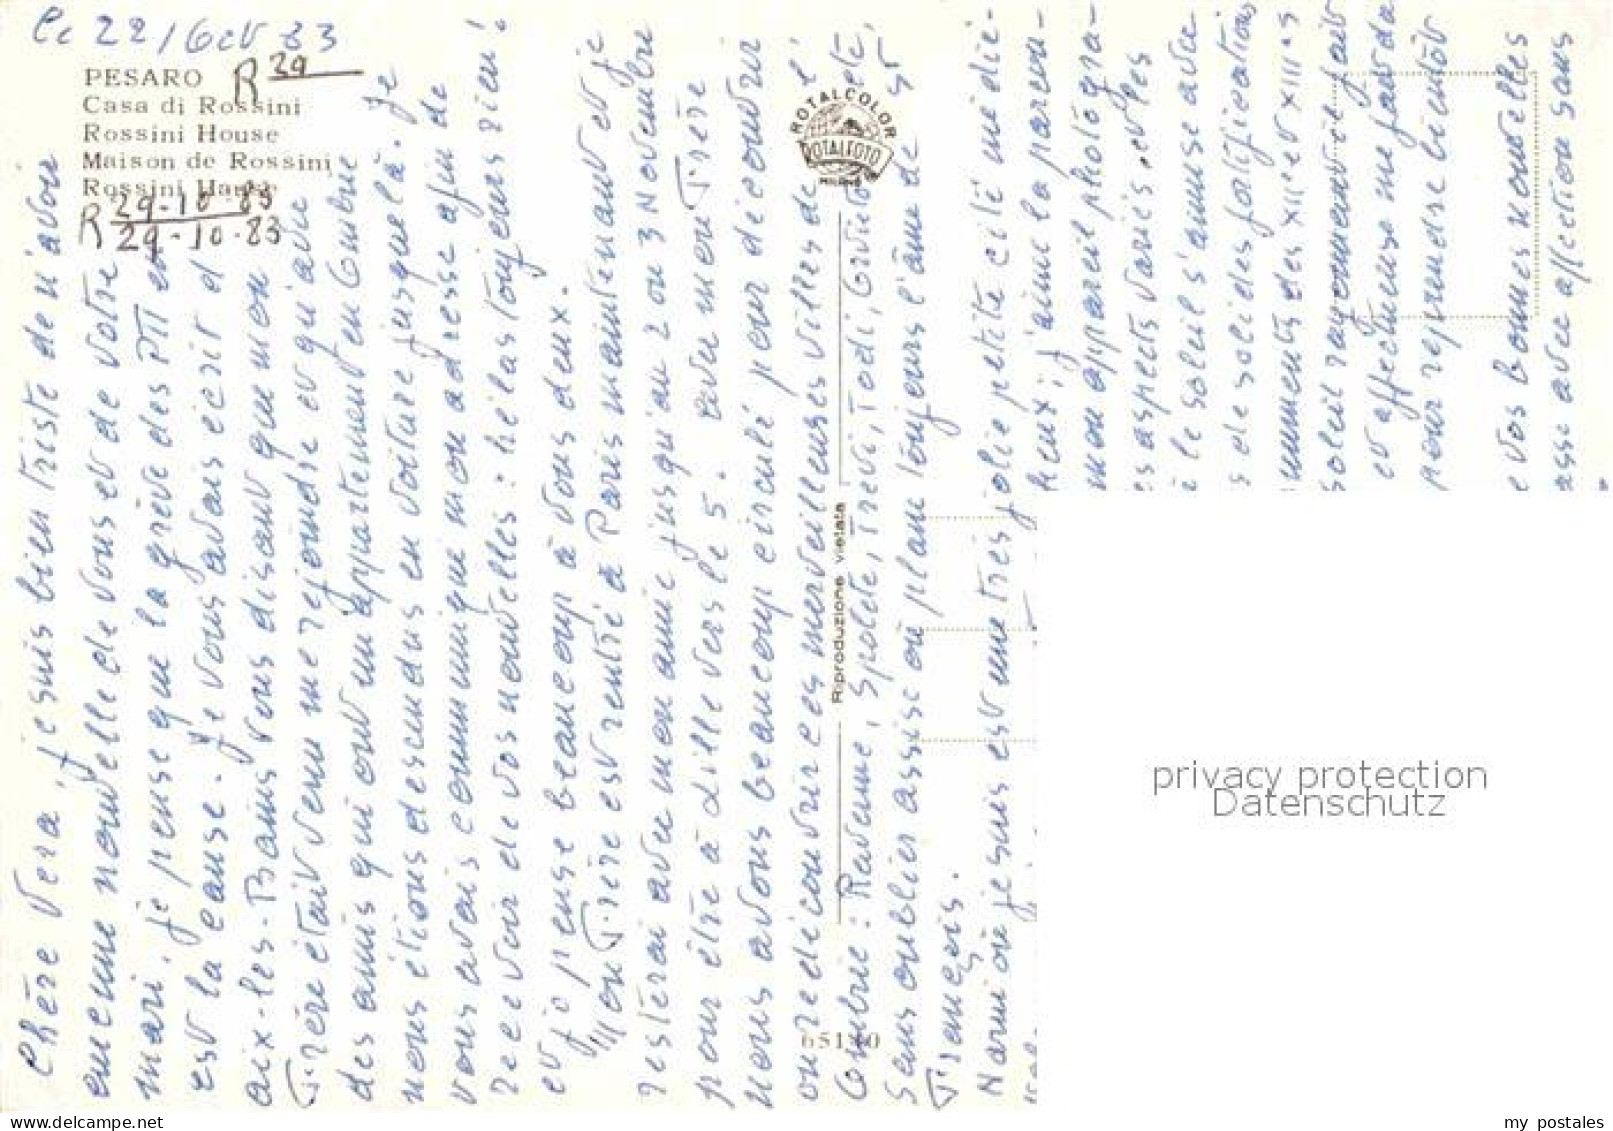 Le 22/Oct 83
PESARO
R 29
Casa di Rossini
Rossini House
Maison de Rossini
Rossini Hause
R 29-10-83
29-10-83
Chère Vera, je suis bien triste de n'avoir
aucune nouvelle de vous et de votre
mari, je pense que la grève des PTT en
est la cause. Je vous avais écrit d'
aix-les-Bains vous disant que mon
Frère était venu me rejoindre et qu'avec
des amis qui ont un appartement en Ombrie
nous étions descendus en voiture jusque là. Je
vous avais communiqué mon adresse afin de
recevoir de vos nouvelles : hélas toujours rien !
et je pense beaucoup à vous deux.
Mon Frère est rentré à Paris maintenant et je
resterai avec mon amie jusqu'au 2 ou 3 Novembre
pour être à dille vers le 5. avec mon Frère
nous avons beaucoup circulé pour découvrir
ou redécouvrir ces merveilleuses villes de l'
Ombrie : Ravenne, Spolete, Trevi, Todi, Orvieto,
sans oublier assise où plane toujours l'âme de St
François.
Narni où je suis est une très jolie petite cité médié-
heux ; j'aime la parcou-
mon appareil photogra-
es aspects variés, et les
i le soleil s'amuse avec
s de solides fortifications
numents des XIIe et XIIIe s
soleil rayonnant il fait
et affectueuse me faus da
pour reprendre bientôt
e vos bonnes nouvelles
asse avec affection sans
ROTALCOLOR
ROTALFOTO
MILANO
Riproduzione vietata
65140
privacy protection
Datenschutz
www.delcampe.net
my_postales